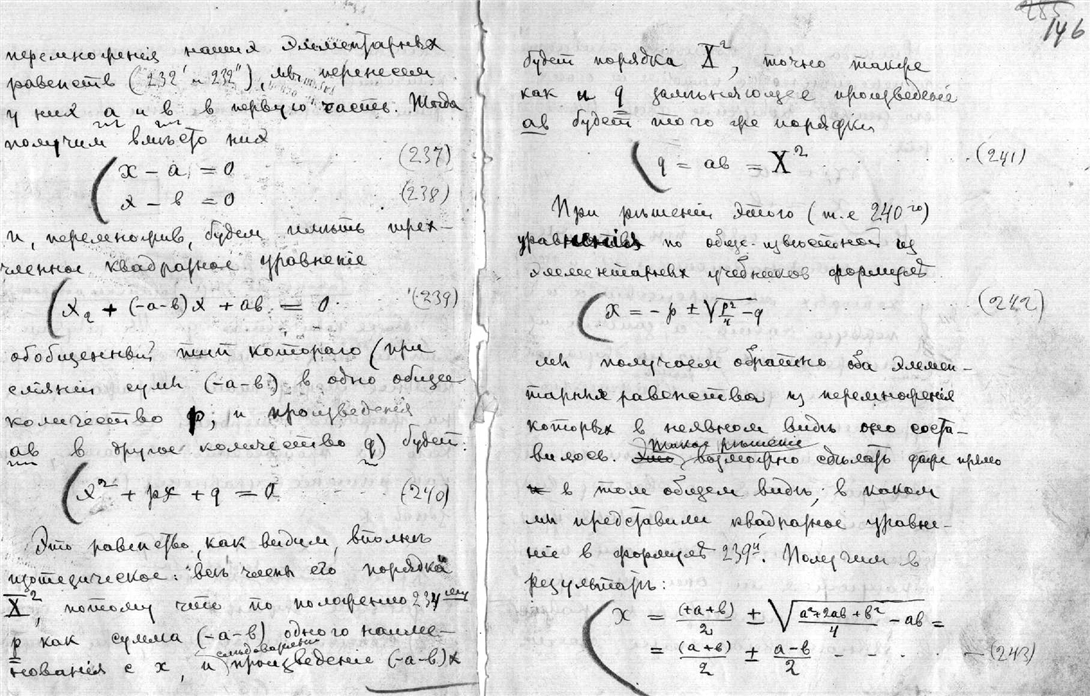 перемноженія нашихъ элементарныхъ
равенствъ (232' и 232"), мы перенесем
у них a и в в первую часть. Тогда
получим вмѣсто них
x − a = 0 (237)
x − в = 0 (238)
и, перемножив, будем имѣть трех-
членное квадратное уравненіе
x₂ + (-a-в)x + aв = 0 (239)
обобщенный тип котораго (при
сліяніи сумы (-a-в) в одно общее
количество p, и произведенія
aв в другое количество q) будет:
x² + px + q = 0 (240)
Это равенство, как видим, вполнѣ
изотезическое: всѣ члены его порядка
X², потому что по положенію 234
p как сумма (-a-в) одного наиме-
нованія с x, и слѣдовательно произведеніе (-a-в)x
285
146
будет порядка X², точно также
как и q замѣняющее произведеніе
aв будет того же порядка
q = aв = X² (241)
При рѣшеніи этого (т.е 240го)
уравненія по обще-извѣстной из
элементарных учебников формулѣ
x = -p ± √p²/4 - q (242)
мы получаем обратно оба элемен-
тарныя равенства из перемноженія
которых в неявном видѣ оно соста-
вилось. Такое рѣшеніе возможно сдѣлать даже прямо
в том общем видѣ, в каком
мы представили квадратное уравне-
ніе в формулѣ 239й. Получим в
результатѣ:
x = (+a+в)/2 ± √(a²+2aв+в²)/4 - aв =
= (a+в)/2 ± (a-в)/2 (243)